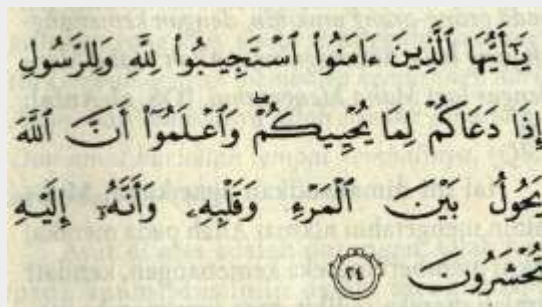 يَـٰٓأَيُّهَا ٱلَّذِينَ ءَامَنُوا۟ ٱسْتَجِيبُوا۟ لِلَّهِ وَلِلرَّسُولِ
إِذَا دَعَاكُمْ لِمَا يُحْيِيكُمْ ۖ وَٱعْلَمُوٓا۟ أَنَّ ٱللَّهَ
يَحُولُ بَيْنَ ٱلْمَرْءِ وَقَلْبِهِۦ وَأَنَّهُۥٓ إِلَيْهِ
تُحْشَرُونَ ٢٤